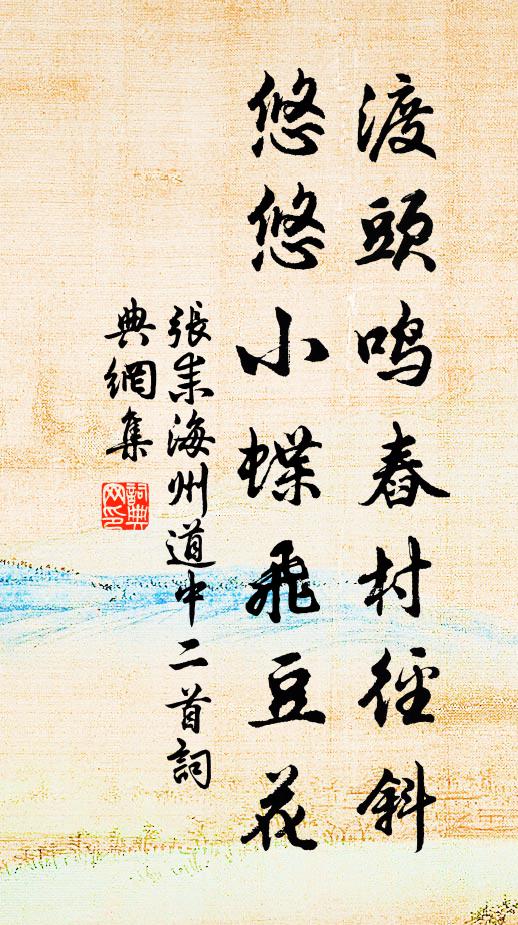 渡頭鳴舂村徑斜
悠悠小蝶飛豆花
張耒海州道中二首詞
典網集
詞典
网印